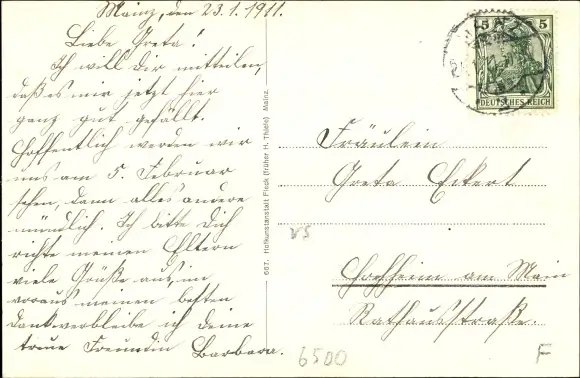 Mainz, den 23.1.1911.
Liebe Greta!
Ich will dir mitteilen,
daß es mir jetzt hier
ganz gut gefällt.
Hoffentlich werden wir
uns am 5. Februar
sehen, dann alles andere
mündlich. Ich bitte Dich
richte meinen Eltern
viele Grüße aus, im
voraus meinen besten
Dank verbleibe ich deine
treue Freundin Barbara.
667. Hofkunstanstalt (früher H. Thiele) Mainz.
5 5
DEUTSCHES REICH
Fräulein
Greta Eckert
Hochheim am Main
Rathausstraße.
6500
F